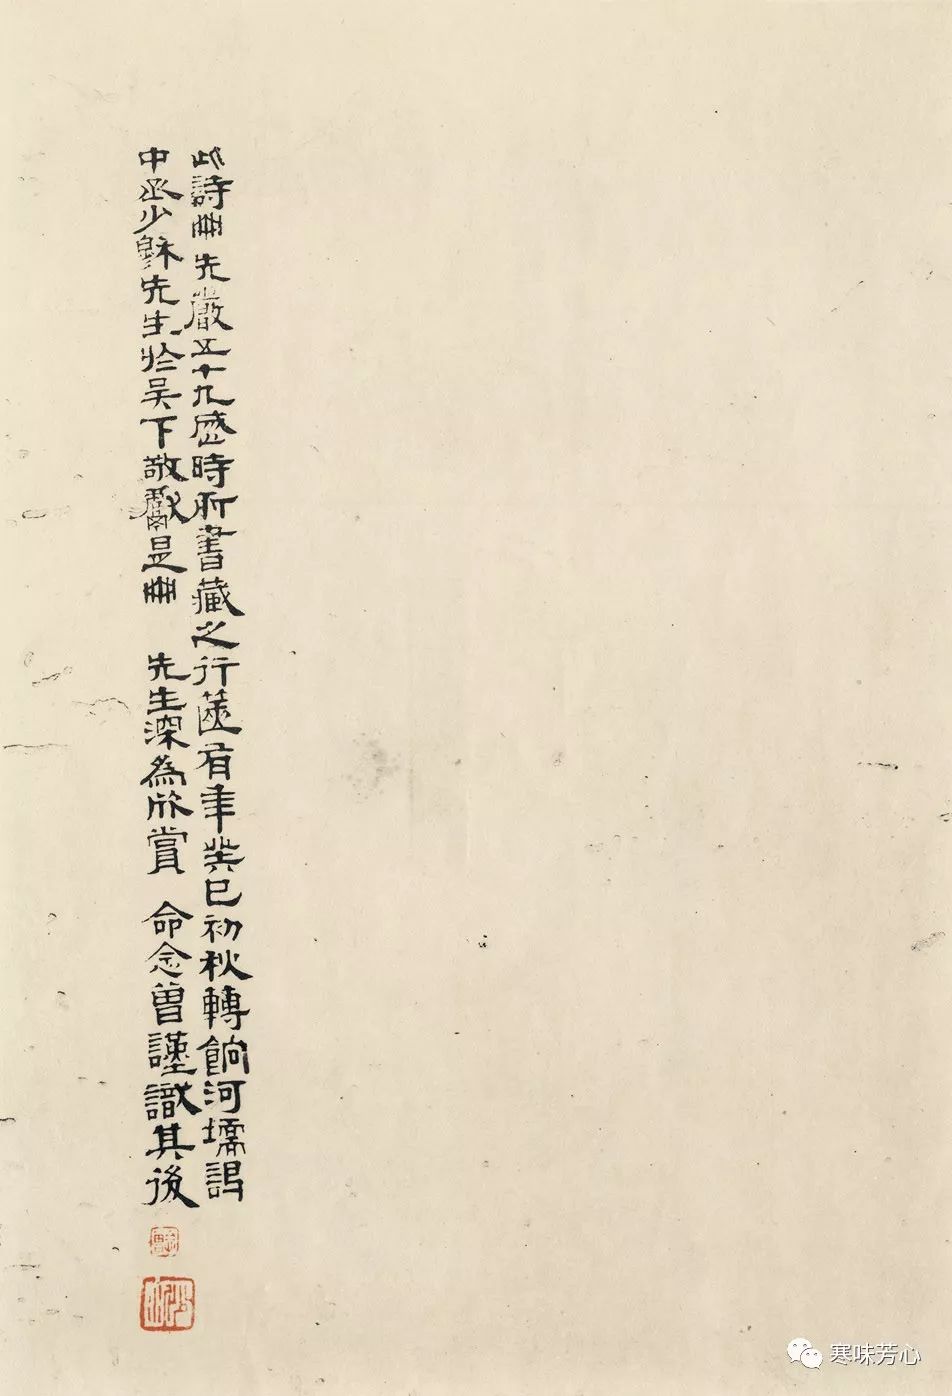 此詩冊先嚴五十九歲時所書藏之行篋有年癸巳初秋轉餉河壖謁
中丞少穌先生於吳下敬獻是冊 先生深為欣賞 命念曾謹識其後
寒味芳心